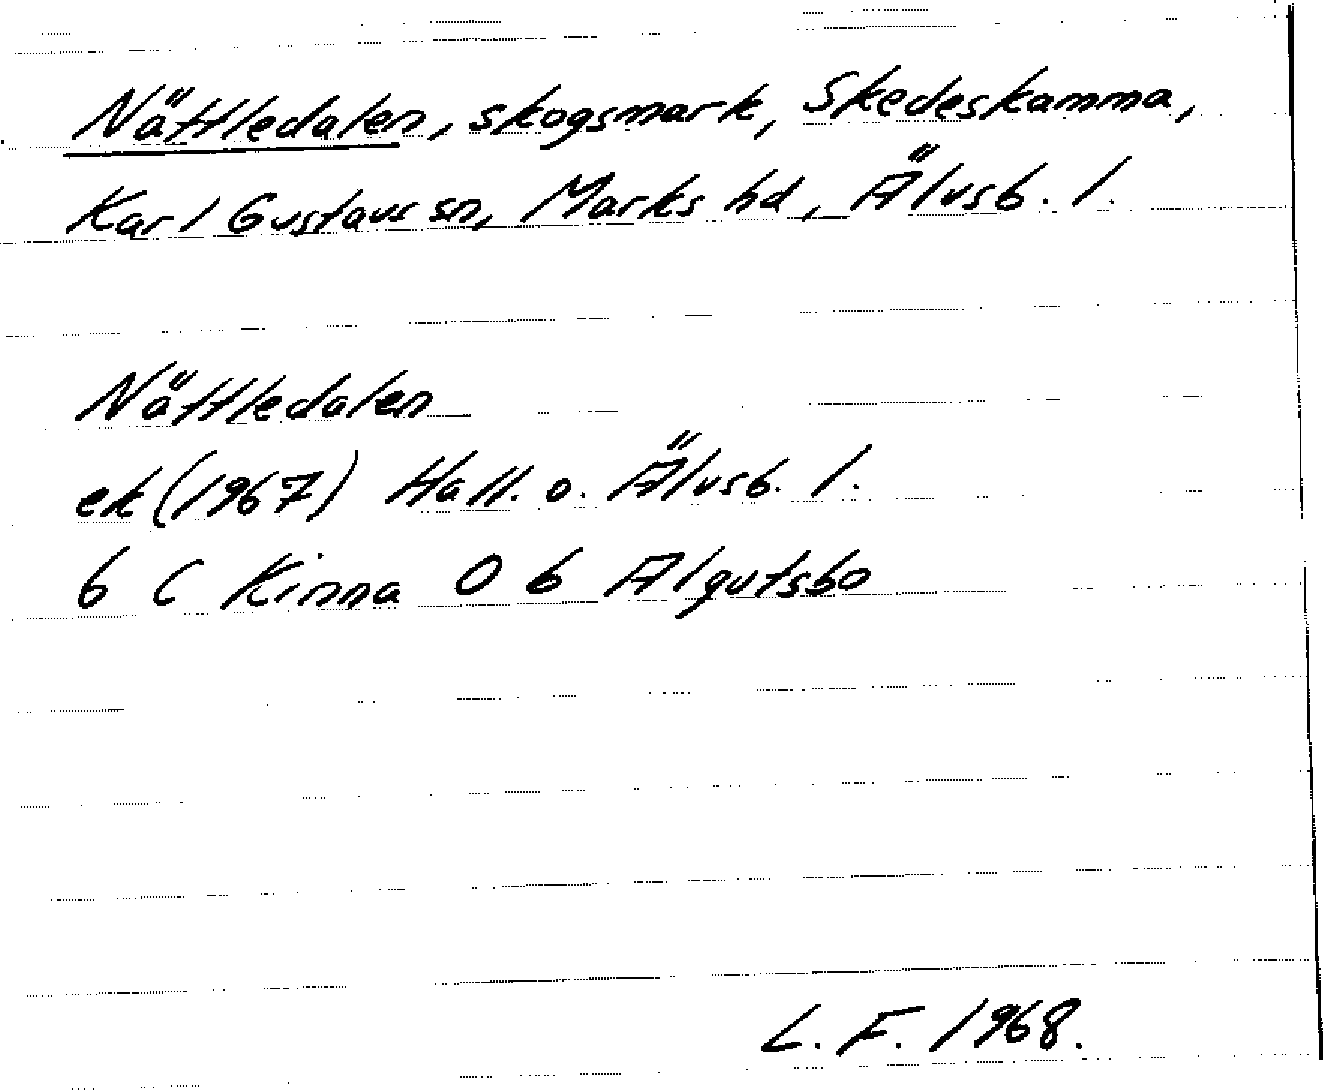 Nättledalen, skogsmark, Skedeskamma,
Karl Gustavs sn, Marks hd, Älvsb. l.
Nättledalen
ek (1967) Hall. o. Älvsb. l.
6 C Kinna 0 b Algutsbo
L. F. 1968.